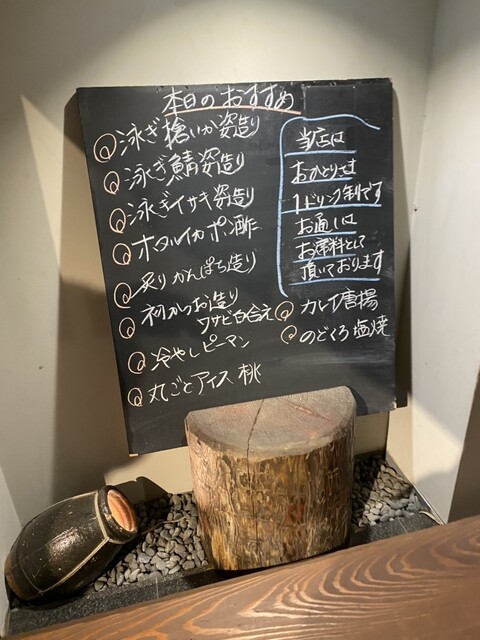 本日のおすすめ
泳ぎ槍いか姿造り
泳ぎ鯖姿造り
泳ぎイサキ姿造り
ホタルイカポン酢
炙りかんぱち造り
初かつお造り
ワサビ白合え
冷やしピーマン
丸ごとアイス 桃
当店は
おひとりさま
1ドリンク制です
お通しは
お席料として
頂いております
カレイ唐揚
のどくろ塩焼